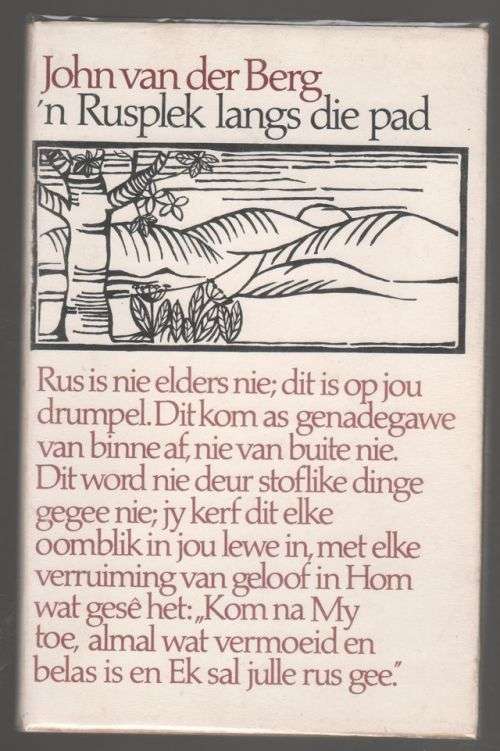 John van der Berg
'n Rusplek langs die pad
Rus is nie elders nie; dit is op jou
drumpel. Dit kom as genadegawe
van binne af, nie van buite nie.
Dit word nie deur stoflike dinge
gegee nie; jy kerf dit elke
oomblik in jou lewe in, met elke
verruiming van geloof in Hom
wat gesê het: „Kom na My
toe, almal wat vermoeid en
belas is en Ek sal julle rus gee."